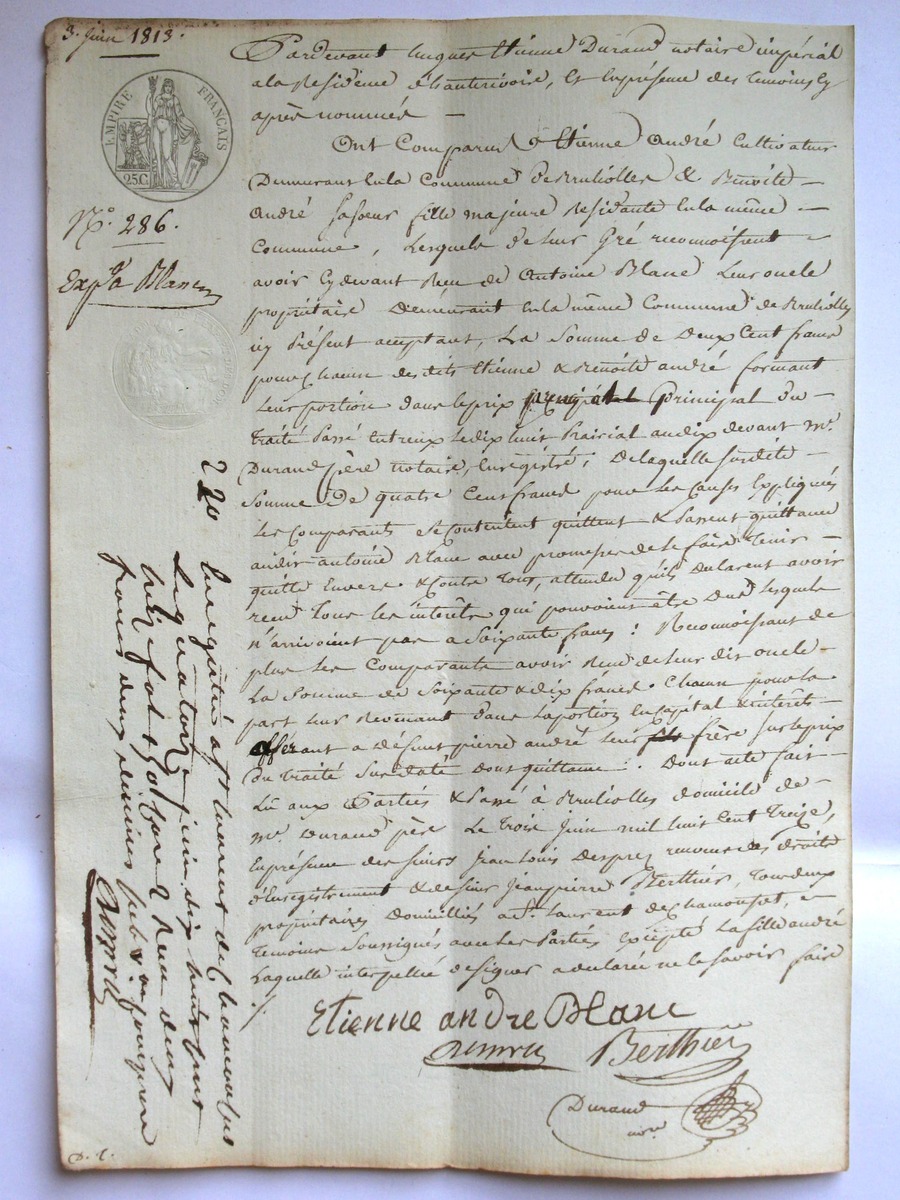 3. Juin 1813.
EMPIRE FRANÇAIS
25C
N.º 286.
Exp.é a Blanc
Pardevant hugues Etienne Durand notaire impérial
a la Residence d'hauterivoire, Et Enprésence des temoins Cy
après nommés —
Ont Comparu Etienne andré Cultivateur
Demeurant En la Commune de Brulliolles & Benoite —
andré sa soeur fille majeure Residante En la même —
Commune, Lesquels de leur Gré reconnoissent —
avoir Cy devant Reçu de Antoine Blanc Leur oncle
propriétaire Demeurant En la même Commune de Brulliolles
icy Présent acceptant, La Somme de Deux Cent francs
pour Chacun des dits Etienne & Benoite andré formant
Leur portion dans le prix principal du —
Traité Passé Entreux Le dix huit Prairial an dix devant M.e
Durand père notaire, Enregistré; De laquelle susdite —
Somme De quatre Cent francs pour les Causes Expliquées
Les Comparants se Contentent quittent & Passent quittance
audit antoine Blanc avec promesse de le faire Tenir —
quitte Envers & Contre Tous, attendu qu'ils Declarent avoir
recu Tous les intérêts qui pouvoient être dus Lesquels
n'arrivoient pas a Soixante francs: Reconnoissant de
plus les Comparants avoir Recu de Leur dit oncle
La Somme de Soixante & dix francs. Chacun pour la
part leur Revenant Dans la portion En Capital & intérêts
afférant a défunt pierre andré leur frère sur le prix
du Traité Sus daté dont quittance: Dont acte fait
Lu aux Parties & Passé à Brulliolles domicile de
M.e Durand père Le Trois Juin mil huit Cent Treize,
En présence des sieurs Jean Louis Desprez receveur des droits
d'Enregistrement & de sieur Jean pierre Berthier, Tous deux
propriétaires Domiciliés a S.t Laurent de Chamousset, —
Temoins Soussignés avec Les Parties Excepté La fille andré
Laquelle interpellée de signer a declarée ne le savoir faire
./.
Etienne andre Blanc
Berthier
Durand
no.re
Enregistré a St Laurent de Chamousset
Le quatorze juin dix huit cent
Reçu deux
francs deux decimes
D. C.